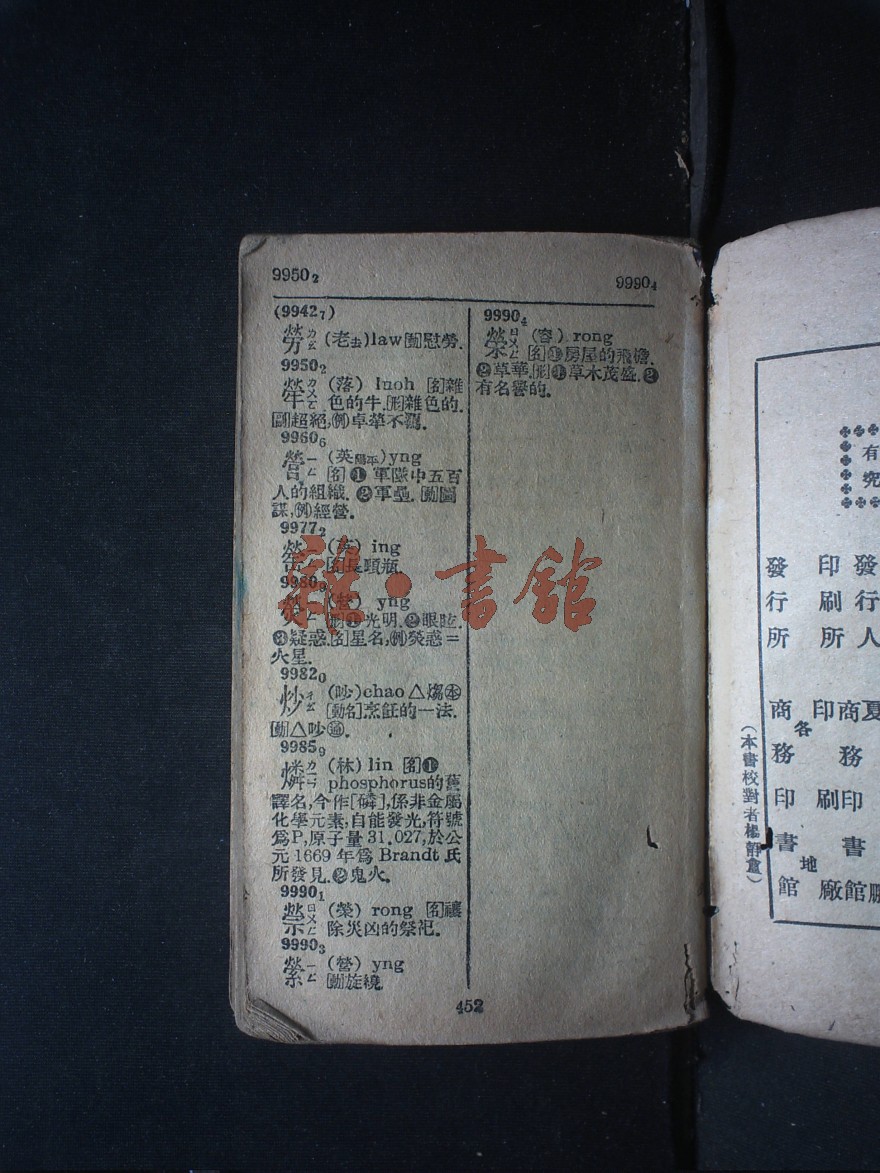 9950₂ 9990₄
(9942₇)
勞 ㄌㄠ (老去)law [動]慰勞.
9950₂
犖 ㄌㄨㄛ (落) luoh [名]雜
色的牛.[形]雜色的.
[副]超絕,(例)卓犖不羈.
9960₆
營 ㄧㄥ (英陽平)yng
[名]❶軍隊中五百
人的組織.❷軍壘.[動]圖
謀,(例)經營.
9977₂
罃 (英) ing
[名]長頸瓶.
熒 (營) yng
[形]❶光明.❷眼眩.
❸疑惑.[名]星名,(例)熒惑=
火星.
9982₀
炒 ㄔㄠ (吵)chao △煼㊍
[動名]烹飪的一法.
[動]△吵㊢.
9985₉
燐 ㄌㄧㄣ (林) lin [名]❶
phosphorus的舊
譯名,今作[磷],係非金屬
化學元素,自能發光,符號
爲P,原子量31.027,於公
元1669年爲Brandt氏
所發見.❷鬼火.
9990₁
禜 ㄖㄨㄥ (榮) rong [名]禳
除災凶的祭祀.
9990₃
縈 ㄧㄥ (營) yng
[動]旋繞.
9990₄
榮 ㄖㄨㄥ (容) rong
[名]❶房屋的飛檐.
❷草華.[形]❶草木茂盛.❷
有名譽的.
452
雜·書館
有
究
發行人 夏鵬
印刷所 商務印書館
印
各地
發行所 商務印書館
(本書校對者楊靜盦)